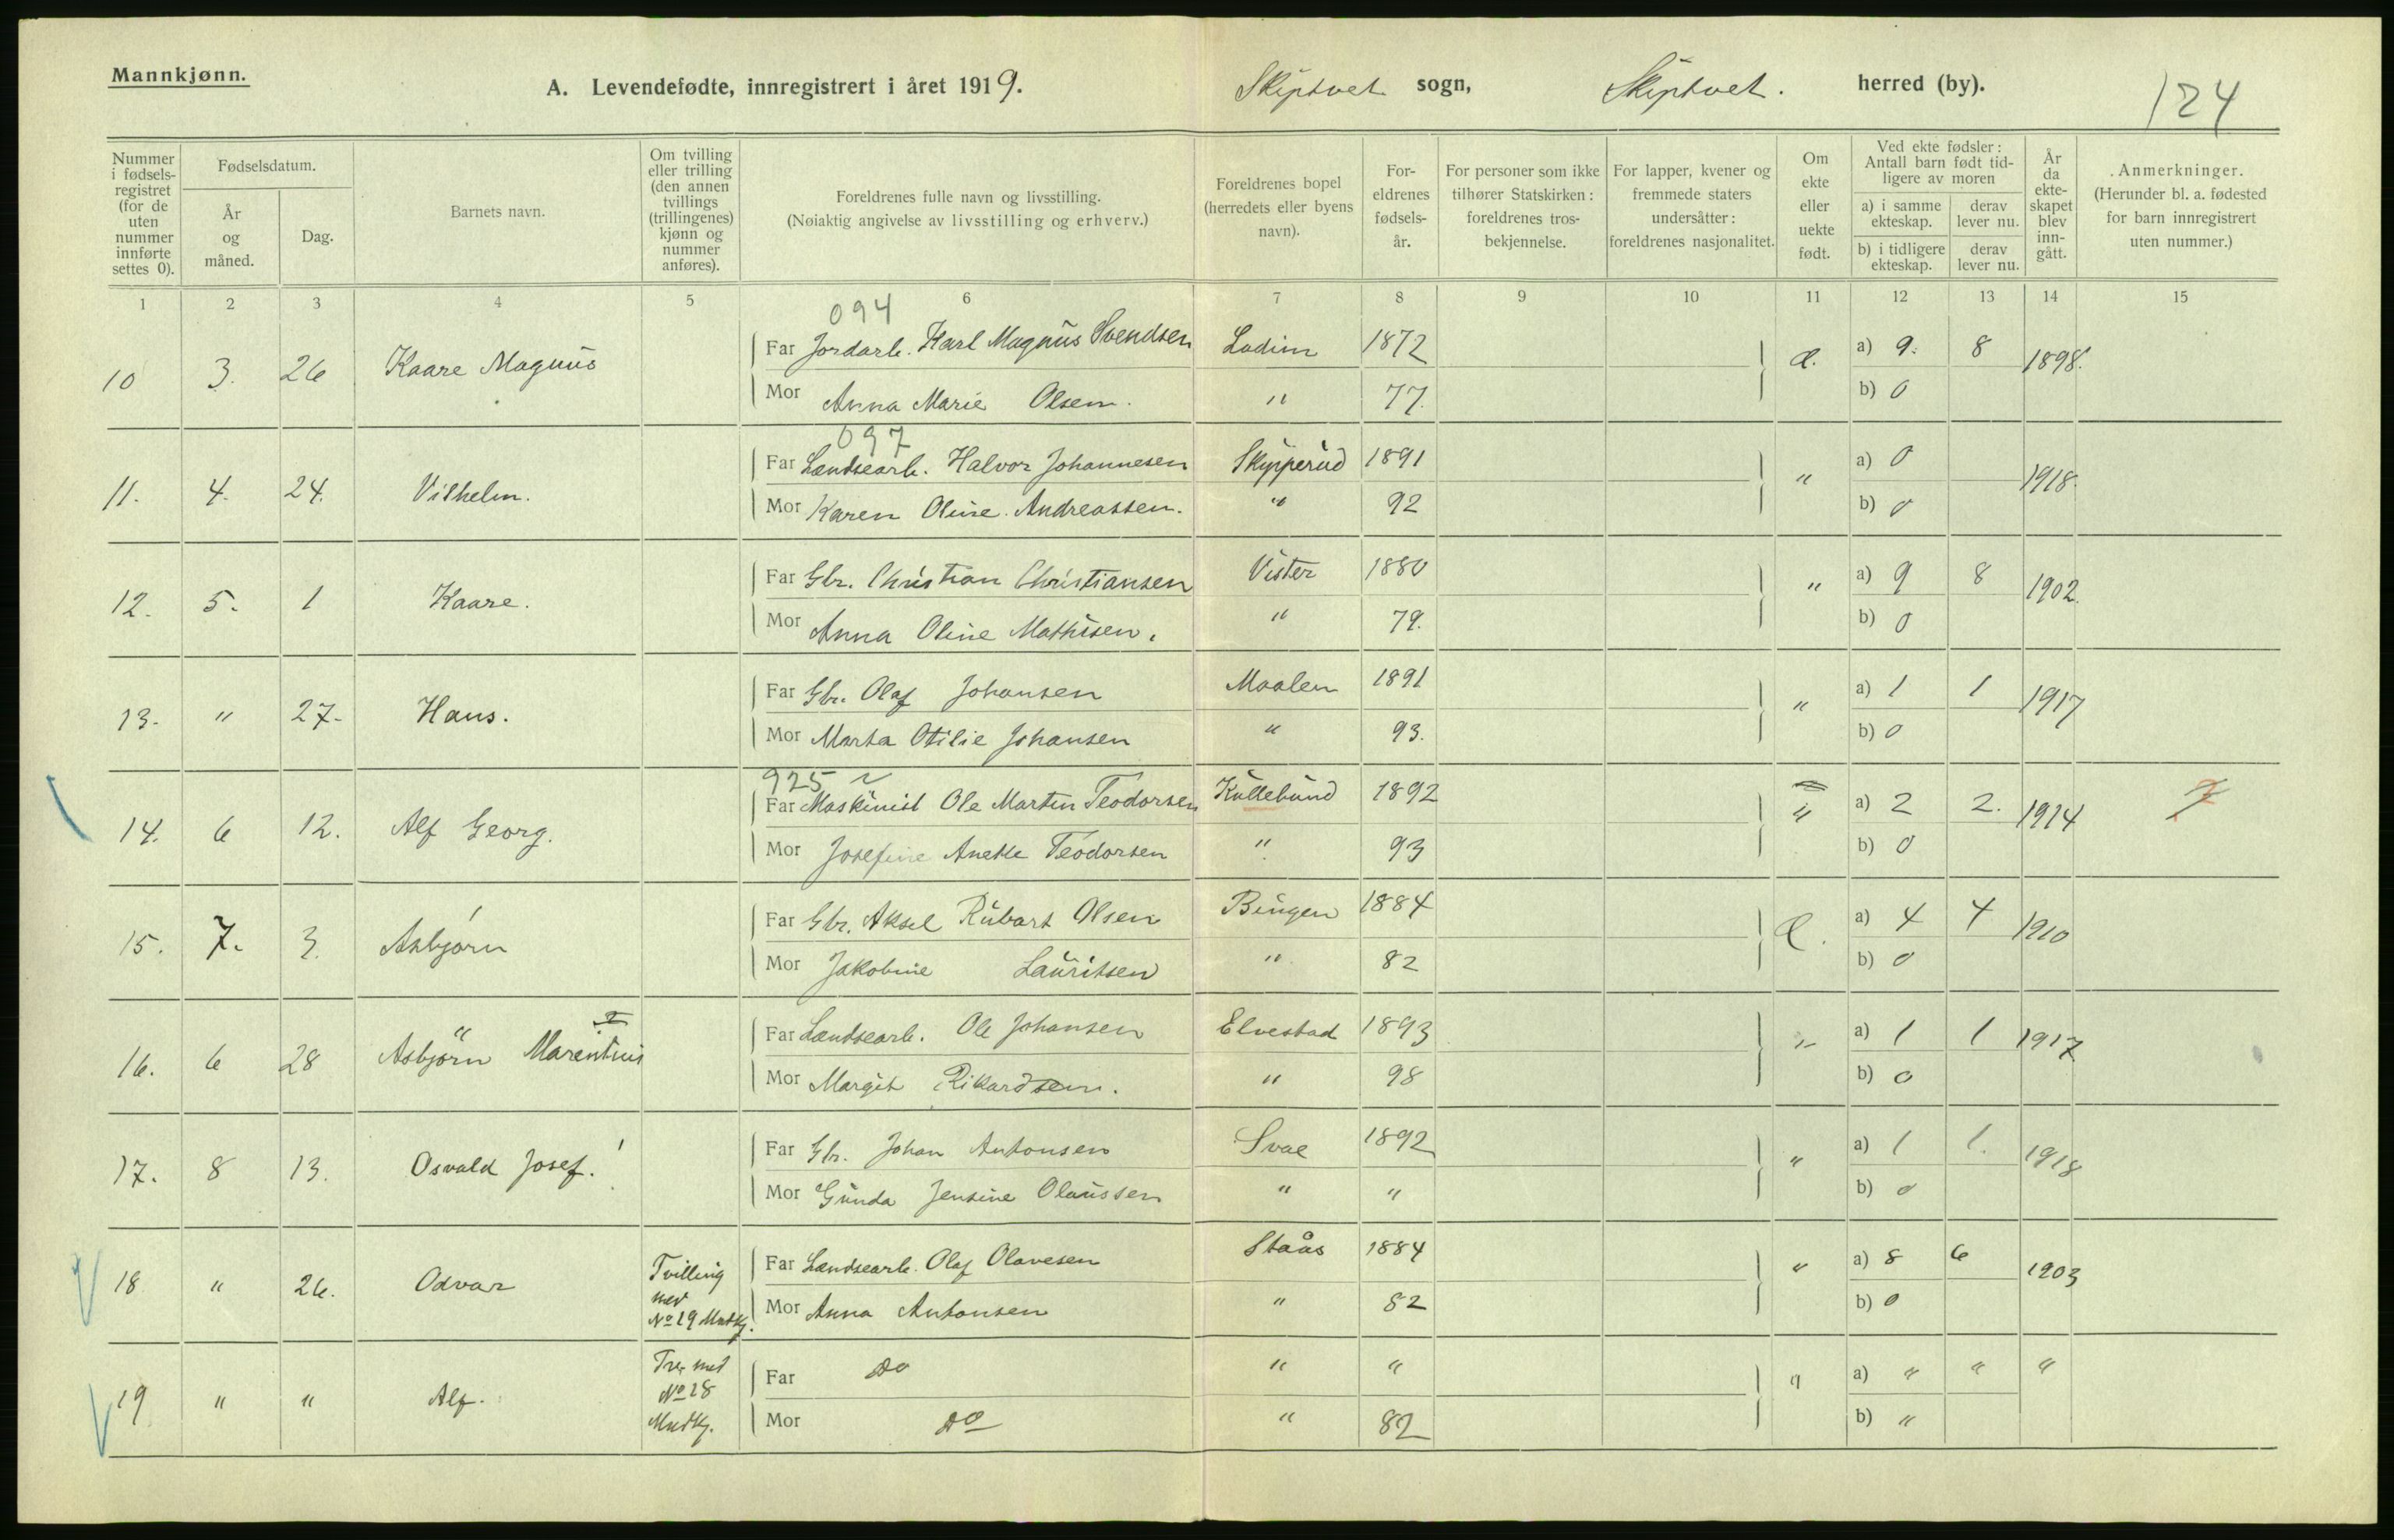 Mannkjønn.
A. Levendefødte, innregistrert i året 1919.
Skiptvet sogn, Skiptvet. herred (by).
124
Nummer i fødsels-registret (for de uten nummer innførte settes 0).
Fødselsdatum.
År og måned.
Dag.
Barnets navn.
Om tvilling eller trilling (den annen tvillings (trillingenes) kjønn og nummer anføres).
Foreldrenes fulle navn og livsstilling.
(Nøiaktig angivelse av livsstilling og erhverv.)
Foreldrenes bopel (herredets eller byens navn).
For-eldrenes fødsels-år.
For personer som ikke tilhører Statskirken: foreldrenes tros-bekjennelse.
For lapper, kvener og fremmede staters undersåtter: foreldrenes nasjonalitet.
Om ekte eller uekte født.
Ved ekte fødsler: Antall barn født tid-ligere av moren
a) i samme ekteskap.
derav lever nu.
b) i tidligere ekteskap.
derav lever nu.
År da ekte-skapet blev inn-gått.
Anmerkninger.
(Herunder bl. a. fødested for barn innregistrert uten nummer.)
1 2 3 4 5 6 7 8 9 10 11 12 13 14 15
094
10 3. 26 Kaare Magnus Far Jordarb. Karl Magnus Svendsen Lodim 1872 a) 9. 8 1898.
Mor Anna Marie Olsen. " 77. b) 0
097
11. 4. 24. Vilhelm. Far Landsearb. Halvor Johannesen Skipperud 1891 " a) 0 1918.
Mor Karen Oline Andreassen. " 92 b) 0
12. 5. 1 Kaare. Far Gbr. Christian Christiansen Vister 1880 " a) 9 8 1902.
Mor Anna Oline Mathisen. " 79. b) 0
13. " 27. Hans. Far Gbr. Olaf Johansen Maalen 1891 " a) 1 1 1917
Mor Marta Otilie Johansen " 93. b) 0
925
14. 6 12. Alf Georg. Far Maskinist Ole Martin Teodorsen Kullebund 1892 " a) 2 2. 1914
Mor Josefine Anette Teodorsen " 93 b) 0
15. 7. 3. Asbjørn Far Gbr. Aksel Rubart Olsen Bingen 1884 a) 4 4 1910
Mor Jakobine Lauritsen " 82 b) 0
16. 6 28 Asbjörn Marentius Far Landsearb. Ole Johansen Elvestad 1893 " a) 1 1 1917
Mor Margit Rikardsen. " 98 b) 0
17. 8 13. Osvald Josef. Far Gbr. Johan Antonsen Svae 1892 " a) 1 1. 1918
Mor Gunda Jensine Olaussen " " b) 0
18 " 26. Odvar Tvilling med No 19 Mndkj. Far Landsearb. Olaf Olavesen Staås 1884 " a) 8 6 1903
Mor Anna Antonsen " 82 b) 0
19 " " Alf. med No 18 Mndkj. Far do " " " a) " " "
Mor do " 82 b) "